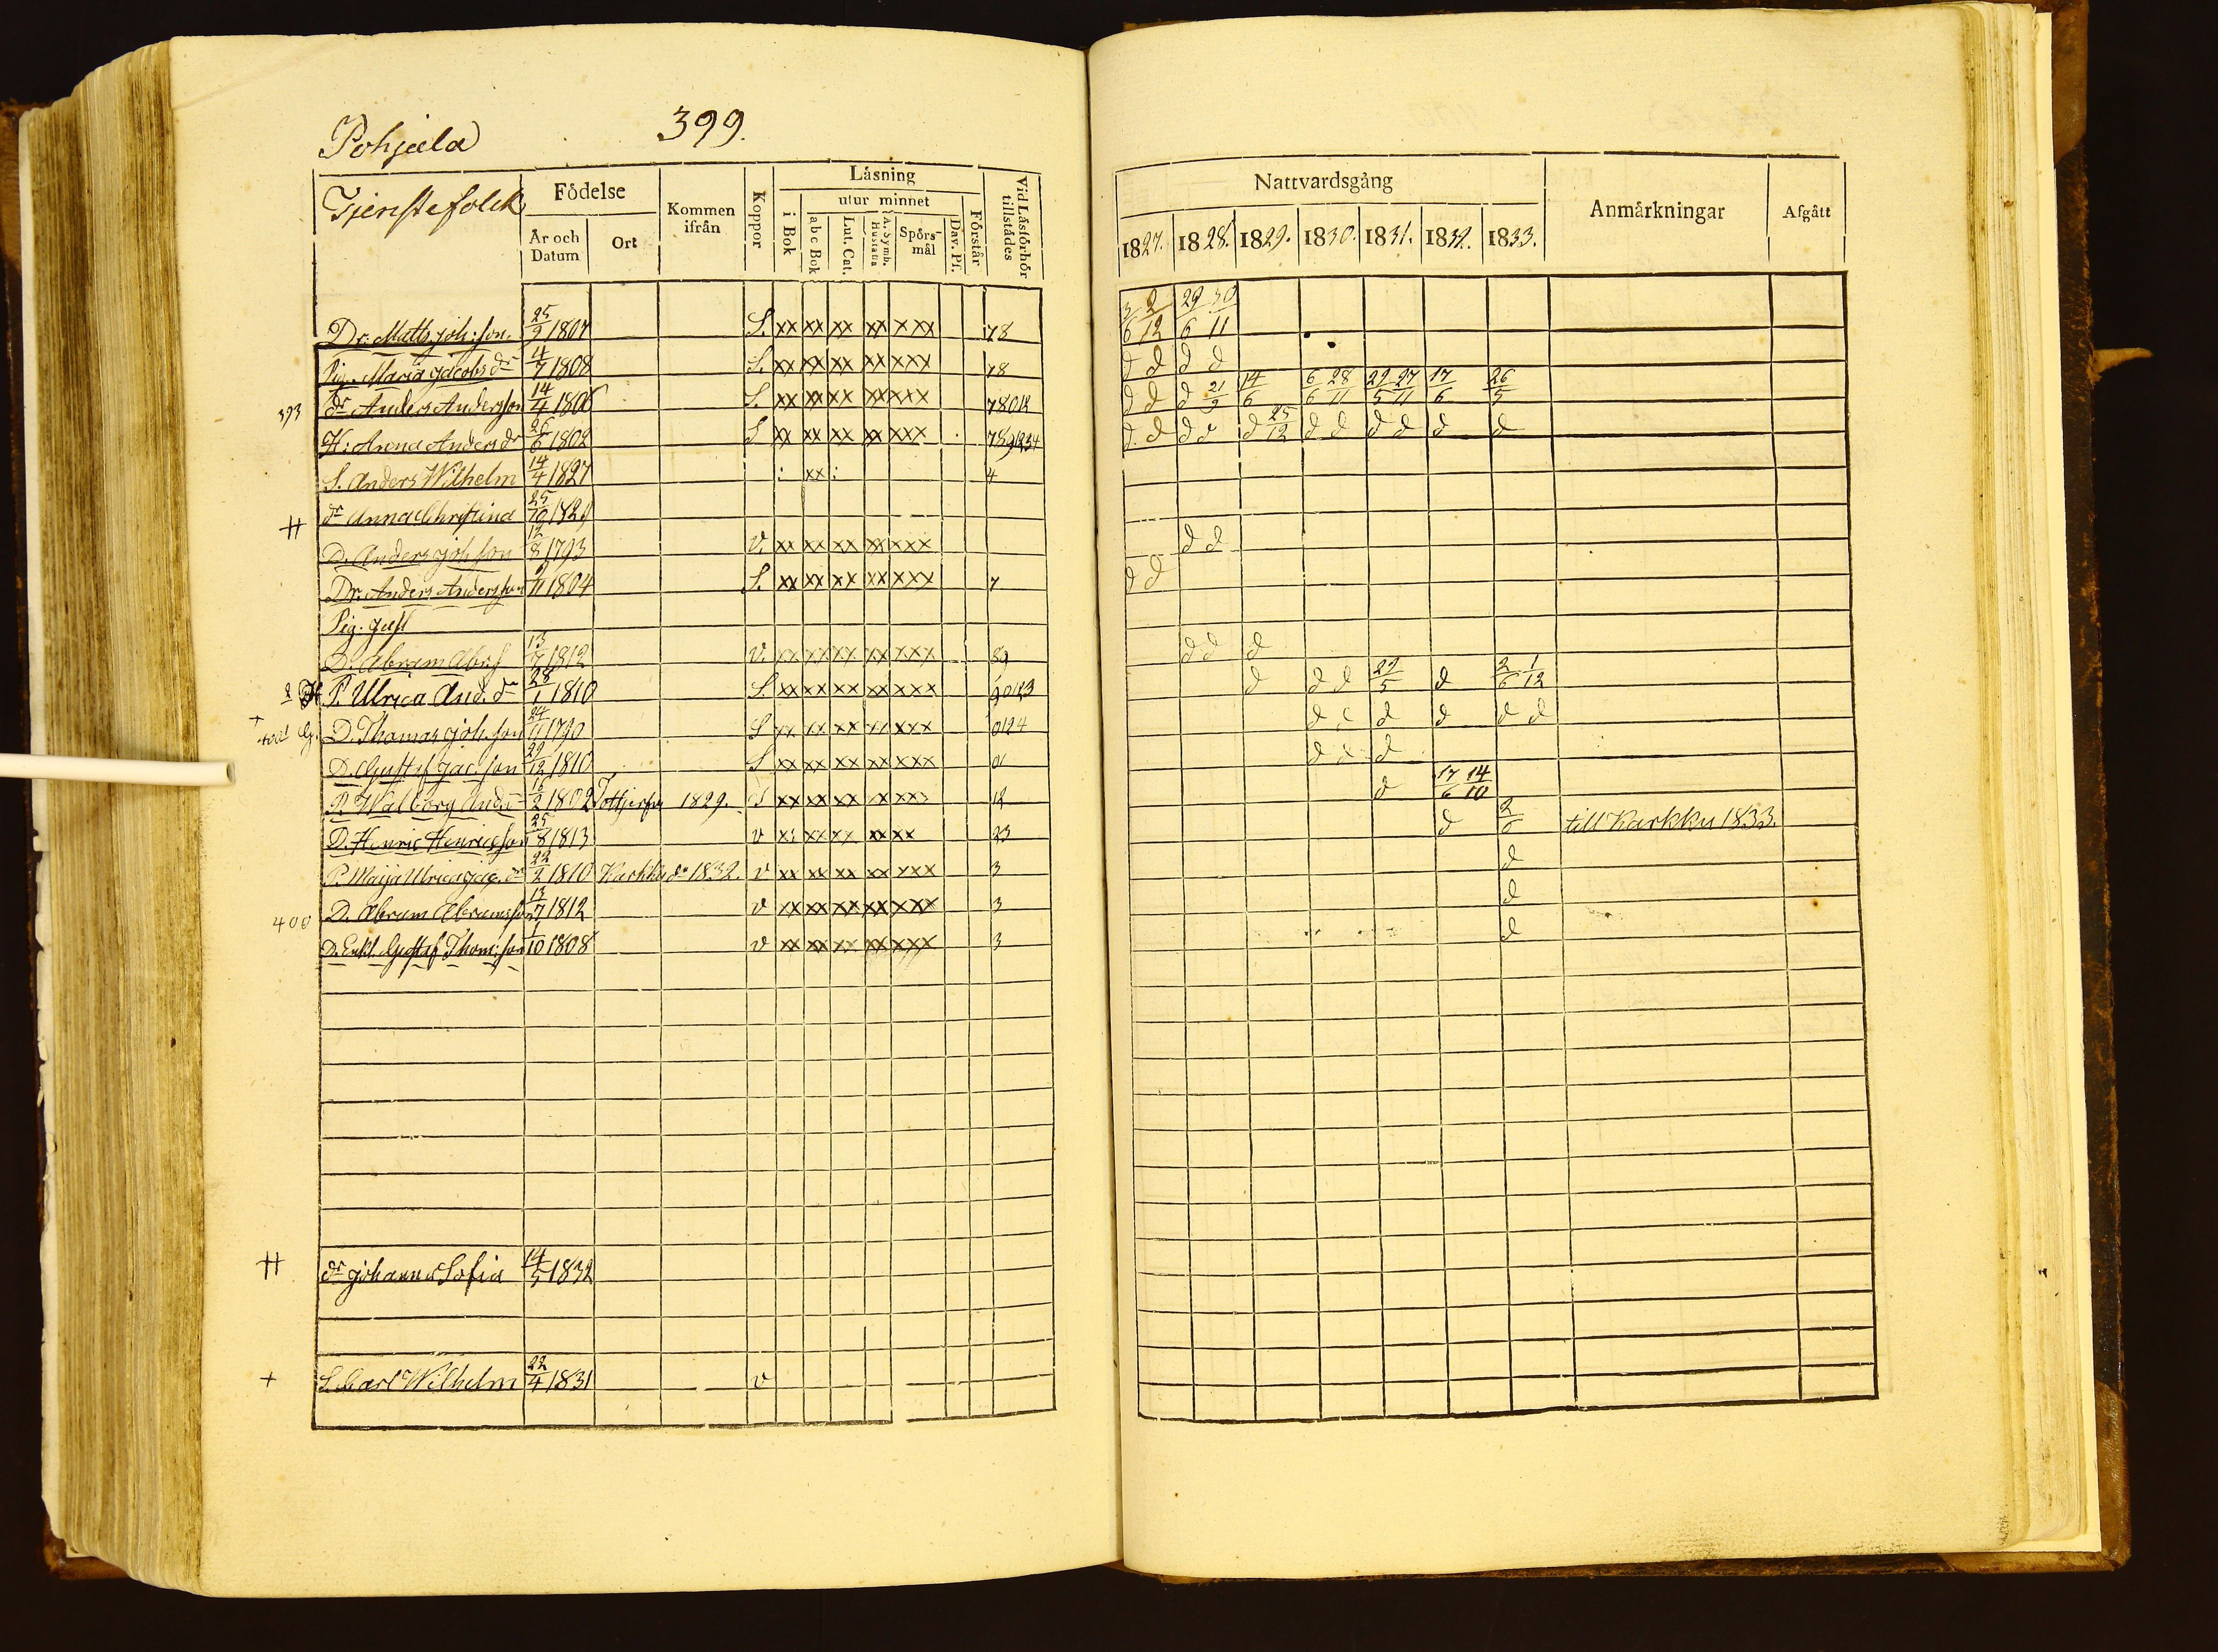 Pohjala 399.
Tjenstefolck Födelse Kommen ifrån Koppor Läsning Vid Läsförhör tillstådes
År och Datum Ort i Bok utur minnet Förstår
abc Bok Lut. Cat. A. Symb. Hustafla Spörs-mål Dav. Ps.
Nattvardsgång Anmärkningar Afgått
1827. 1828. 1829. 1830. 1831. 1832. 1833.
Dr. Matts Joh:son. 25/9 1807 S. xx xx xx xx xxx 78 3/6 2/12 29/6 30/11
Pig. Maria Jacobs dr 4/7 1808 S. xx xx xx xx xxx 78 d d d d
393 dr Anders Andersson 14/4 1806 S. xx xx xx xx xxx 78012 d d d 21/9 14/6 6/6 28/11 29/5 27/11 17/6 26/5
H: Anna Anders dr 26/6 1802 S xx xx xx xx xxx 7891234 d d d d d 25/12 d d d d d d
S. Anders Wilhelm 14/4 1827 : xx : 4
# dr Anna Christina 25/10
D. Anders Joh.son 12/8 1793 V. xx xx xx xx xxx d d
Dr. Anders Andersson 11 1804 S. xx xx xx xx xxx 7 d d
Pig. Just
D. Abram Abr:s 13/7 1812 v. xx xx xx xx xxx 89 d d d
P. Ulrica And. dr 28/1 1810 S xx xx xx xx xxx 90123 d d d 29/5 d 2/6 1/12
+ D. Thomas Joh.son 24/11 1790 S xx xx xx xx xxx 0124 d d d d d d
D. Gustaf Jac.son 29/12 1810 S xx xx xx xx xxx 01 d d d
P. Walborg And. dr 16/2 1802 1829. S xx xx xx x xxx 12 d 17/6 14/10
D. Henric Henricsson 25/8 1813 v xx xx xx xx xx 23 d 2/6 till Karkku 1833.
P. Maija Ulrica Jac. dr 22/2 1810 Karkku do 1832. v xx xx xx xx xxx 3 d
400 D. Abram Abramsson 13/7 1812 v xx xx xx xx xxx 3 d
D. Enkl. Gustaf Thom:son 1/10 1808 v xx xx xx xx xxx 3 d
# dr Johanna Sofia 14/5 1832
+ S. Carl Wilhelm 22/4 1831 v